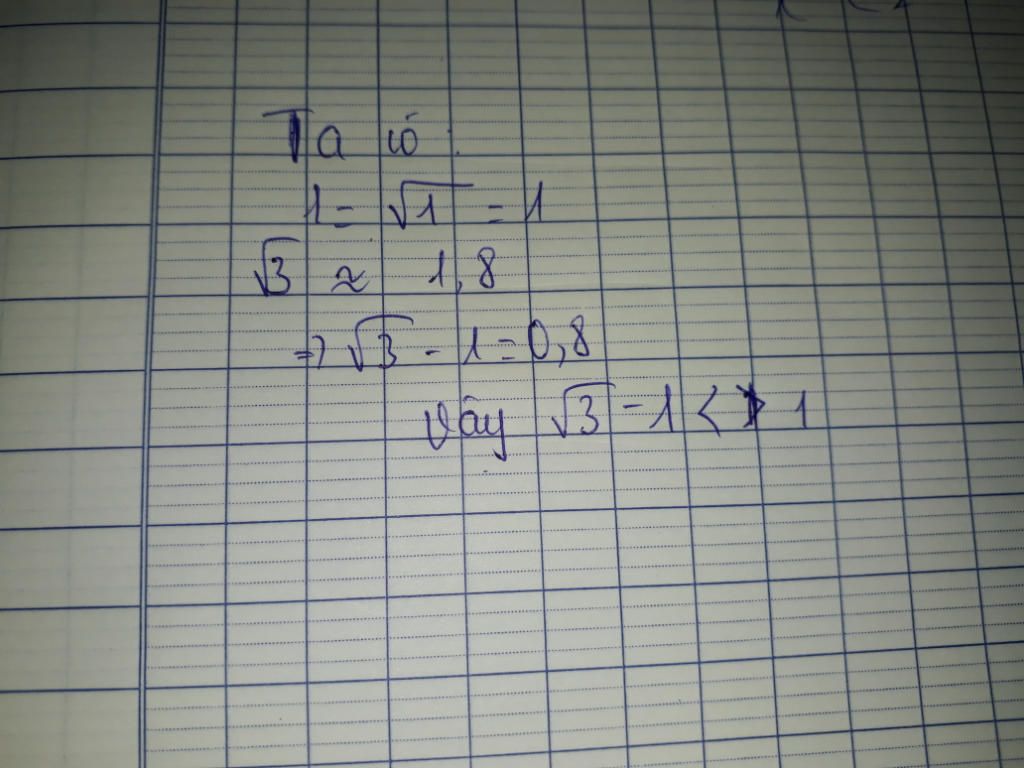 Ta có :
1 = √1 = 1
√3 ≈ 1,8
=> √3 - 1 = 0,8
Vậy √3 - 1 < 1